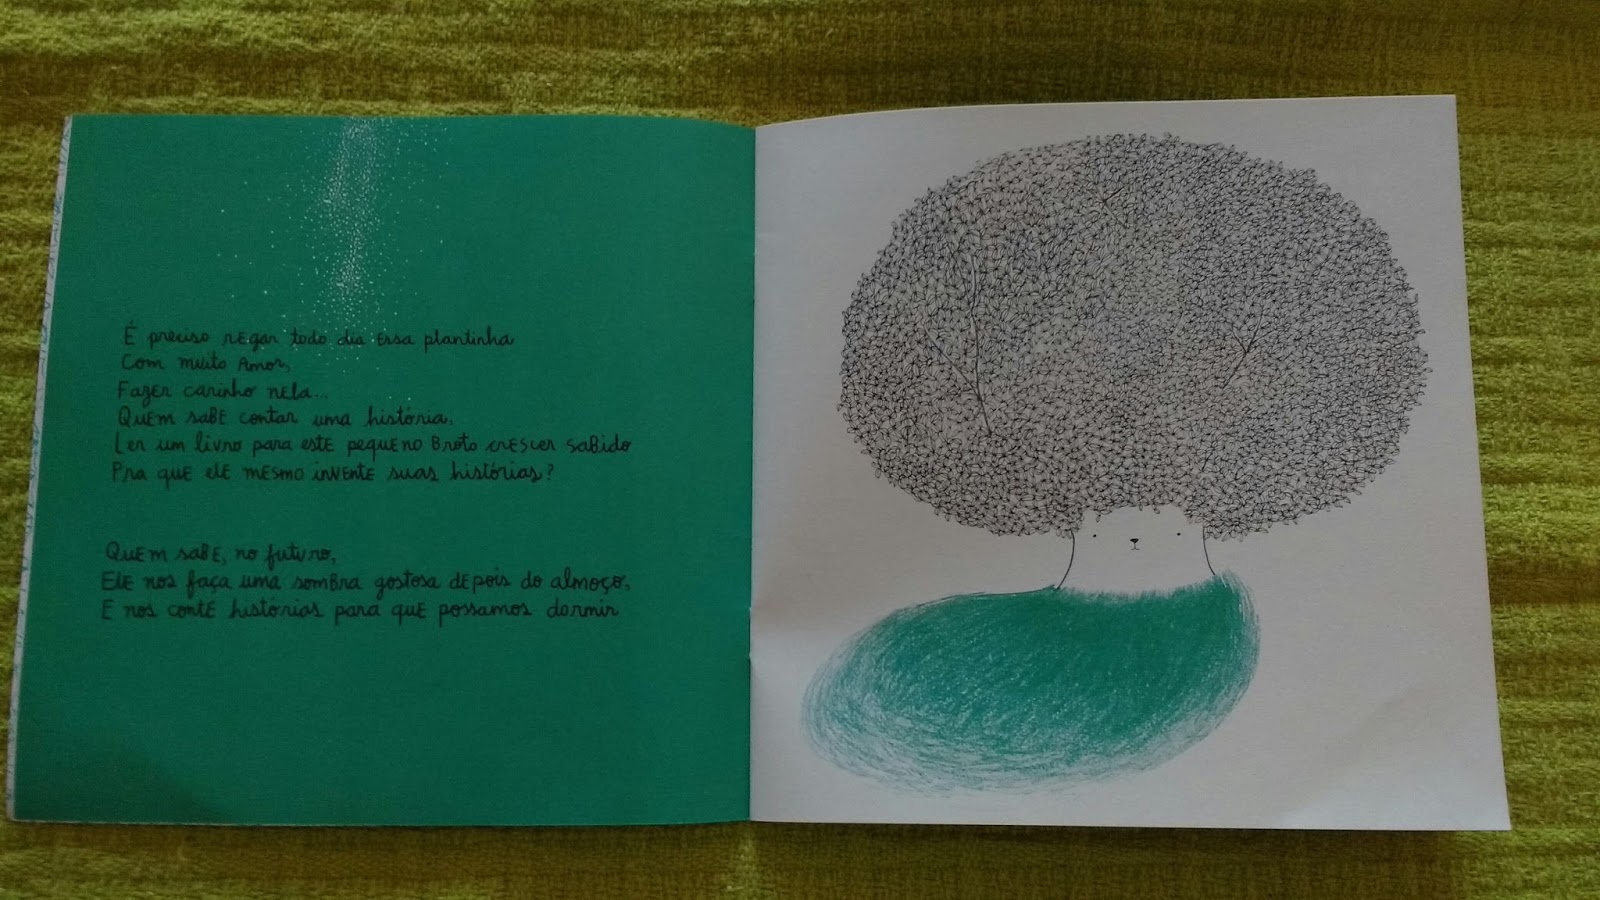 É preciso regar todo dia essa plantinha
Com muito Amor,
Fazer carinho nela...
Quem sabe contar uma história,
Ler um livro para este pequeno Broto crescer sabido
Pra que ele mesmo invente suas histórias?
Quem sabe, no futuro,
Ele nos faça uma sombra gostosa depois do almoço,
E nos conte histórias para que possamos dormir